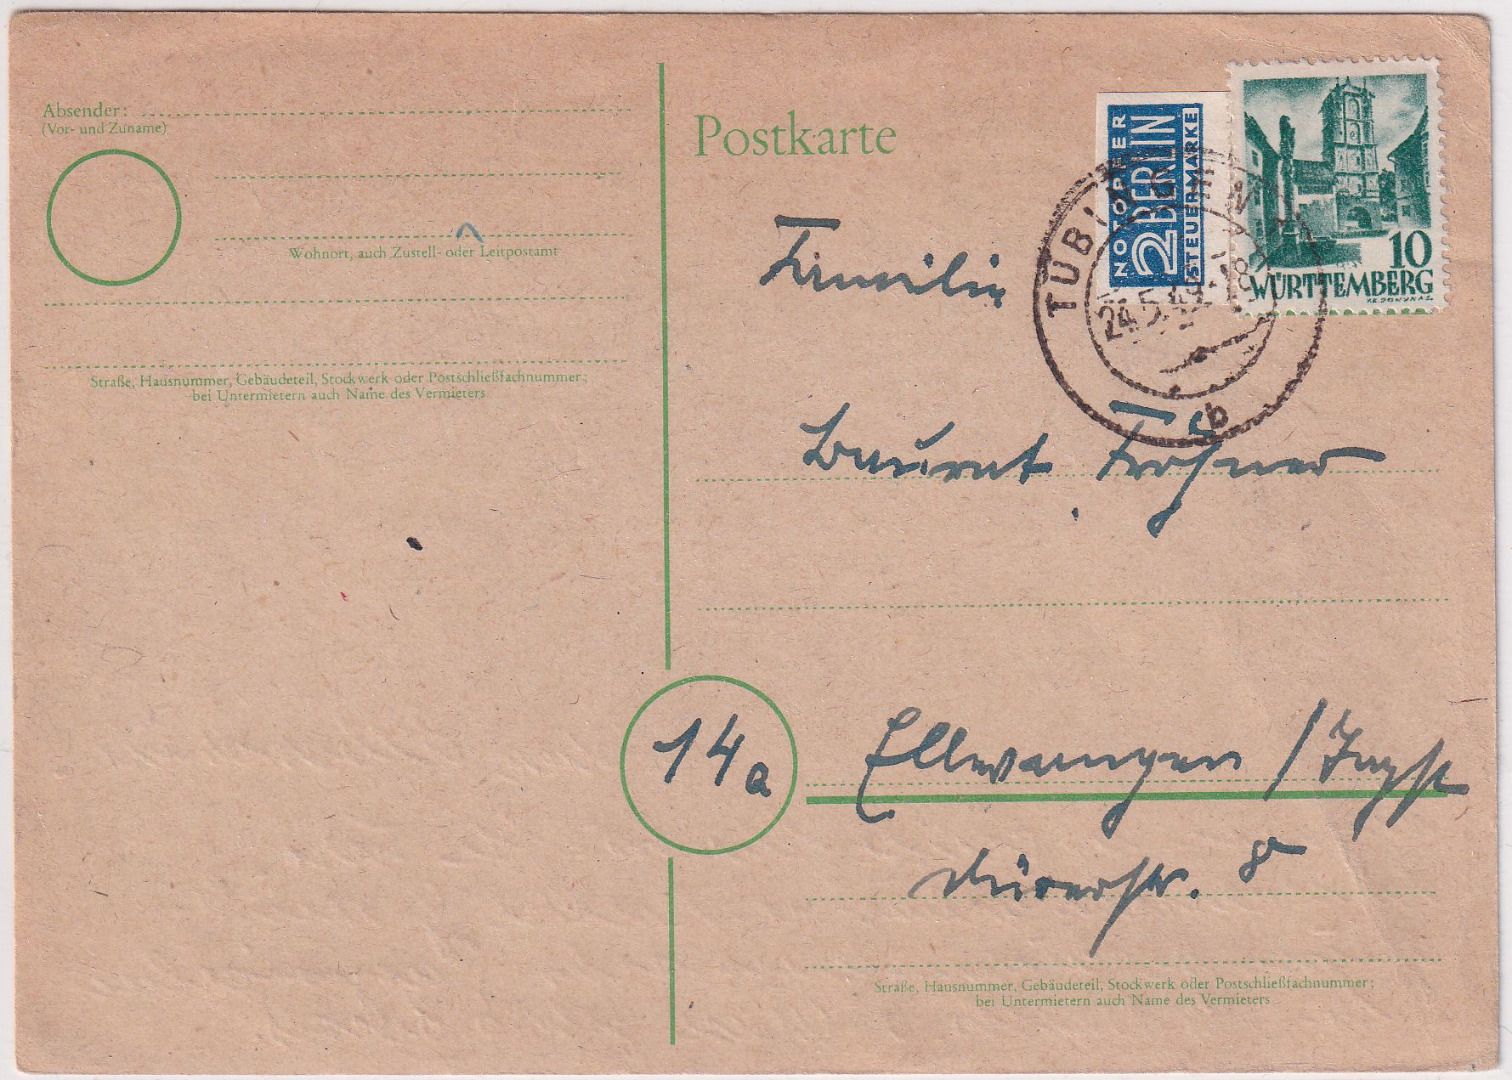 Absender:
(Vor- und Zuname)
Wohnort, auch Zustell- oder Leitpostamt
Straße, Hausnummer, Gebäudeteil, Stockwerk oder Postschließfachnummer;
bei Untermietern auch Name des Vermieters
Postkarte
NOTOPFER
2 BERLIN
STEUERMARKE
10
WÜRTTEMBERG
TÜBINGEN
24.5.49.-18
b
Familie
Baurat
14a
Ellwangen / Jagst
Dürerstr. 8
Straße, Hausnummer, Gebäudeteil, Stockwerk oder Postschließfachnummer;
bei Untermietern auch Name des Vermieters